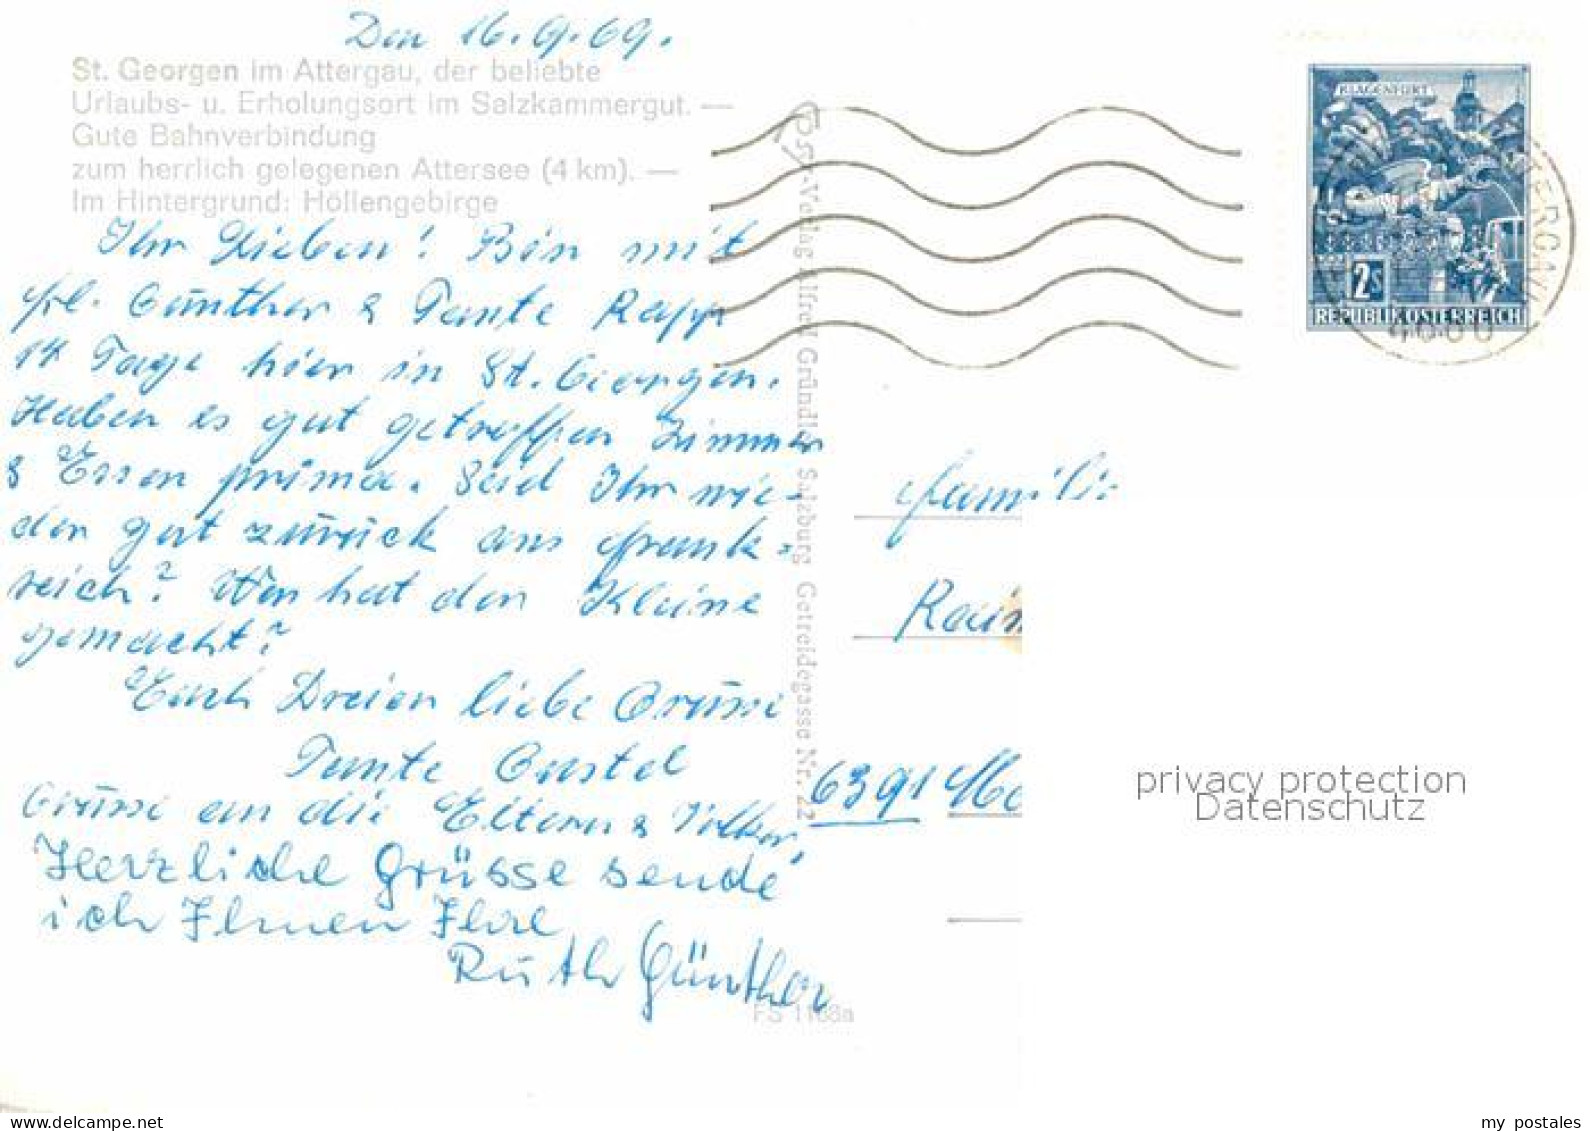 Den 16.9.69.
St. Georgen im Attergau, der beliebte
Urlaubs- u. Erholungsort im Salzkammergut. —
Gute Bahnverbindung
zum herrlich gelegenen Attersee (4 km). —
Im Hintergrund: Höllengebirge
Ihr Lieben! Bin mit
Frl. Günther & Tante Rapp
14 Tage hier in St. Georgen.
Haben es gut getroffen Zimmer
& Essen prima. Seid Ihr wie-
der gut zurück aus Frank-
reich? Wer hat den Kleine
gemacht?
Euch Dreien liebe Grüsse
Tante Gustel
Grüsse an die Eltern & Volker,
Herzliche Grüsse sende
ich Ihnen Ihre
Ruth Günther
FS 1168a
PSV-Verlag Alfred Gründler Salzburg Getreidegasse Nr. 22
KLAGENFURT
2s
REPUBLIK ÖSTERREICH
ATTERGAU
4880
Familie
Rain
6391
privacy protection
Datenschutz
my postales